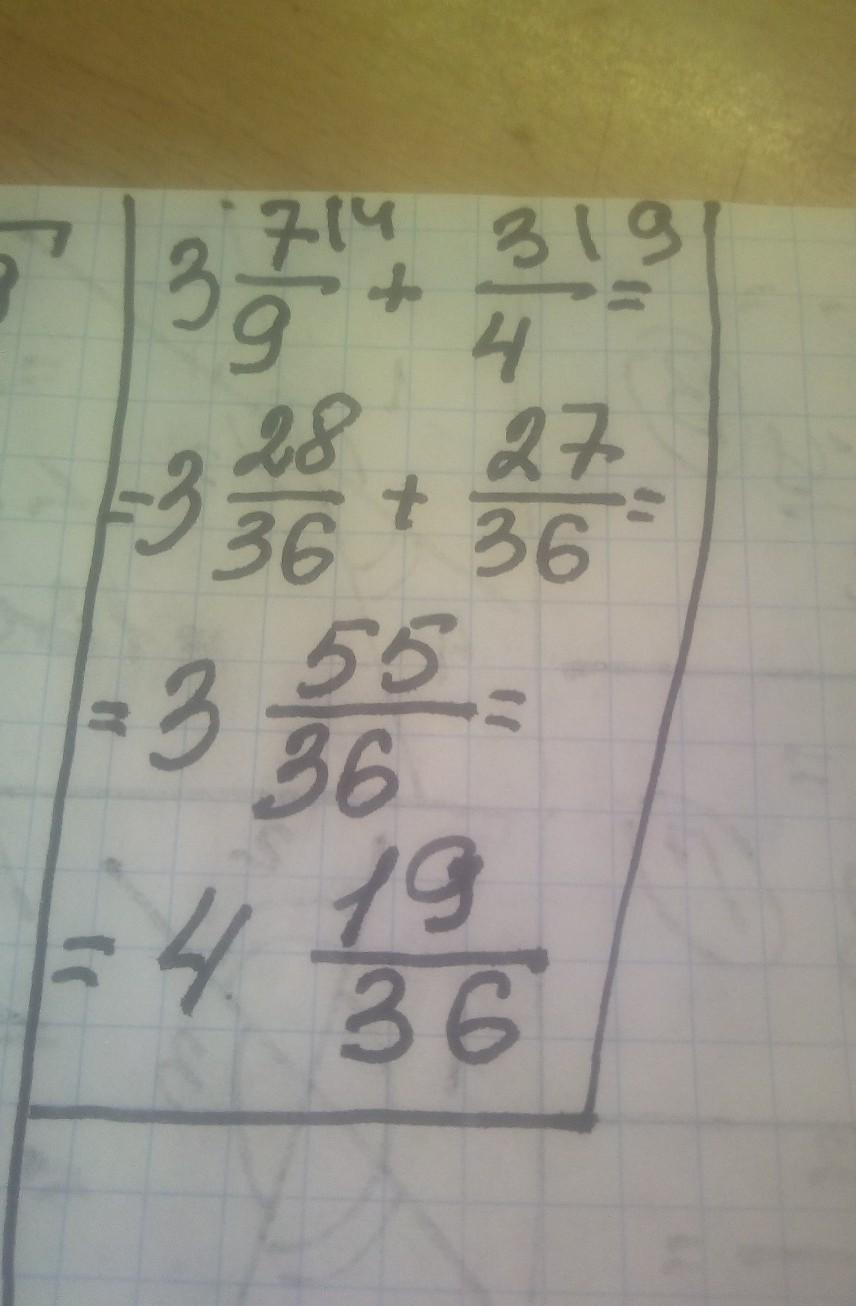 3 7|4/9 + 3|9/4 =
= 3 28/36 + 27/36 =
= 3 55/36 =
= 4 19/36